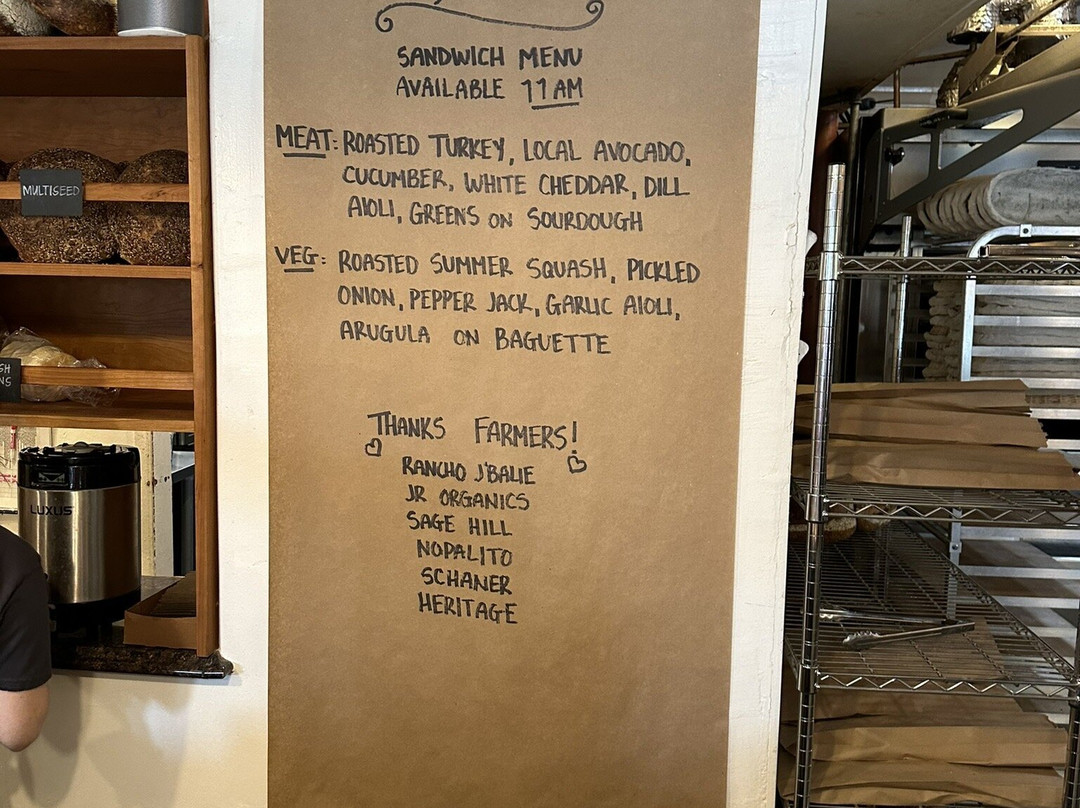 SANDWICH MENU
AVAILABLE 11 AM
MEAT: ROASTED TURKEY, LOCAL AVOCADO,
CUCUMBER, WHITE CHEDDAR, DILL
AIOLI, GREENS ON SOURDOUGH
VEG: ROASTED SUMMER SQUASH, PICKLED
ONION, PEPPER JACK, GARLIC AIOLI,
ARUGULA ON BAGUETTE
THANKS FARMERS!
RANCHO J'BALIE
JR ORGANICS
SAGE HILL
NOPALITO
SCHANER
HERITAGE
MULTISEED
LUXUS